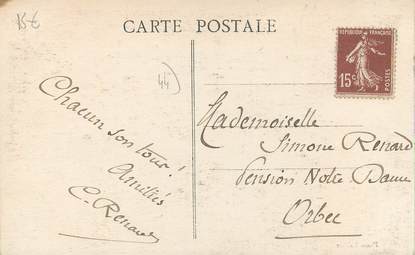 15€
CARTE POSTALE
44
REPUBLIQUE FRANÇAISE
15c
POSTES
Chacun son tour !
Amitiés
C. Renard
Mademoiselle
Simone Renard
Pension Notre Dame
Orbec